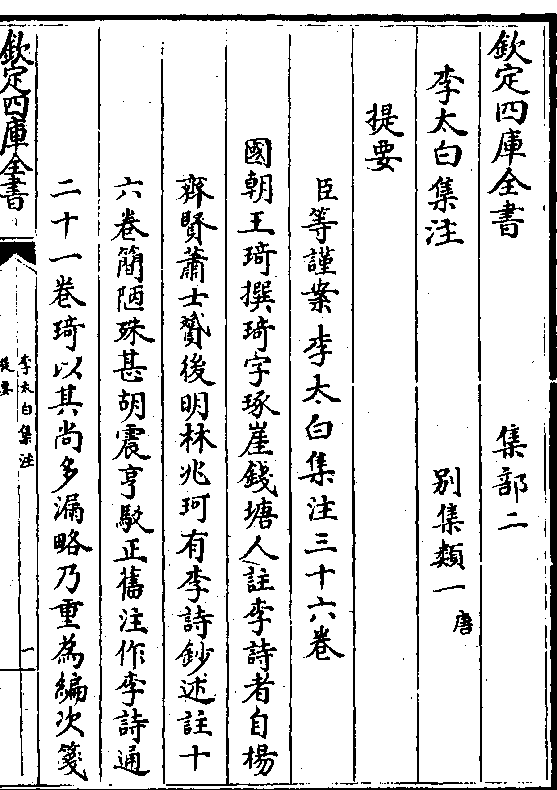 欽定四庫全書　集部二
李太白集注　别集類一唐
提要
臣等謹案李太白集注三十六巻
國朝王琦撰琦字琢崖錢塘人註李詩者自楊
齊賢蕭士贇後明林兆珂有李詩鈔述註十
六巻簡陋殊甚胡震亨駁正舊注作李詩通
二十一巻琦以其尚多漏略乃重為編次箋
欽定四庫全書
李太白集注
提要
一